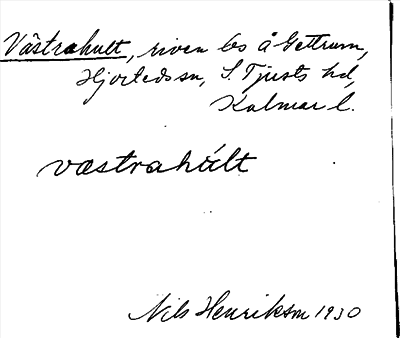 Västrahult, riven bs å Gettrum,
Hjorteds sn, S. Tjusts hd,
Kalmar l.
væstrahúlt
Nils Henrikson 1930